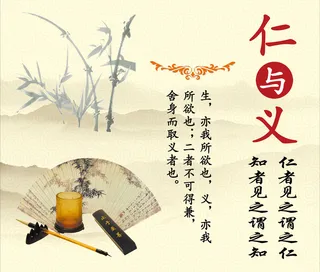 仁与义
仁者见之谓之仁
知者见之谓之知
生，亦我所欲也，义，亦我
所欲也；二者不可得兼，
舍身而取义者也。